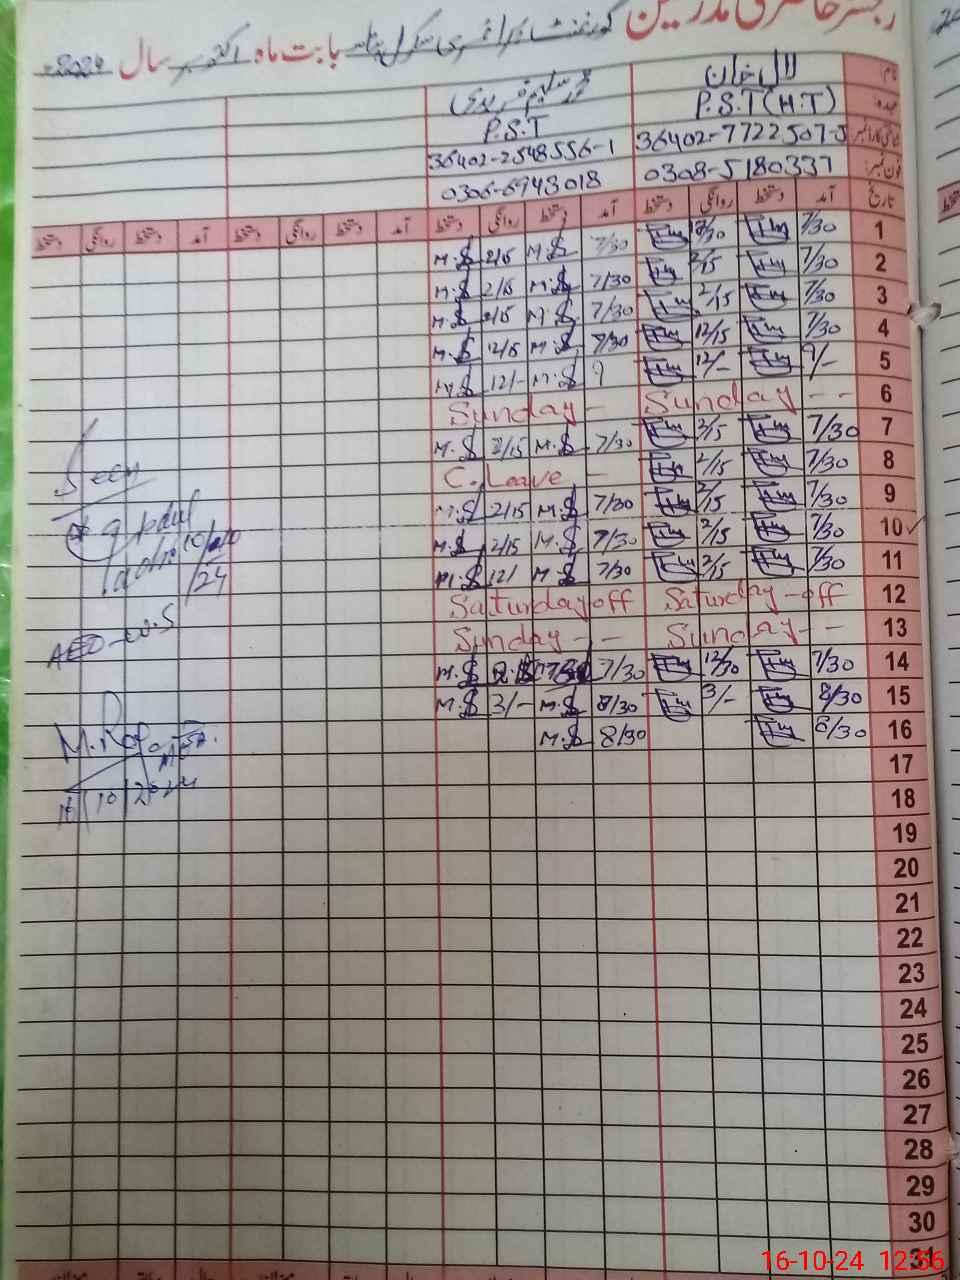 رجسٹر حاضری مدرسین گورنمنٹ پرائمری سکول بابت ماہ اکتوبر سال 2024ء
نام لال خان
عہدہ P.S.T (H.T) P.S.T
شناختی کارڈ نمبر 36402-7722507-5 36402-2548556-1
فون نمبر 0308-5180337 0306-6943018
تاریخ آمد دستخط روانگی دستخط آمد دستخط روانگی دستخط آمد دستخط روانگی دستخط آمد دستخط روانگی دستخط
1 7/30 7/30 M.S 2/15 M.S
2 7/30 2/15 7/30 M.S 2/15 M.S
3 7/30 2/15 7/30 M.S 2/15 M.S
4 7/30 12/15 7/30 M.S 12/15 M.S
5 9/- 12/- 9 M.S 12/- M.S
6 Sunday - - Sunday -
7 7/30 2/15 7/30 M.S 2/15 M.S
8 7/30 2/15 C.Leave -
9 7/30 2/15 7/30 M.S 2/15 M.S
10 7/30 2/15 7/30 M.S 2/15 M.S
11 7/30 2/15 7/30 M.S 12/ M.S
12 Saturday-off Saturday off
13 Sunday - - Sunday - -
14 7/30 12/30 7/30 M.S
15 8/30 3/- 8/30 M.S 3/- M.S
16 8/30 8/30 M.S
17
18
19
20
21
22
23
24
25
26
27
28
29
30
31
Seen
10/10/24
AEO-W.S
16/10/2024
16-10-24 12:56